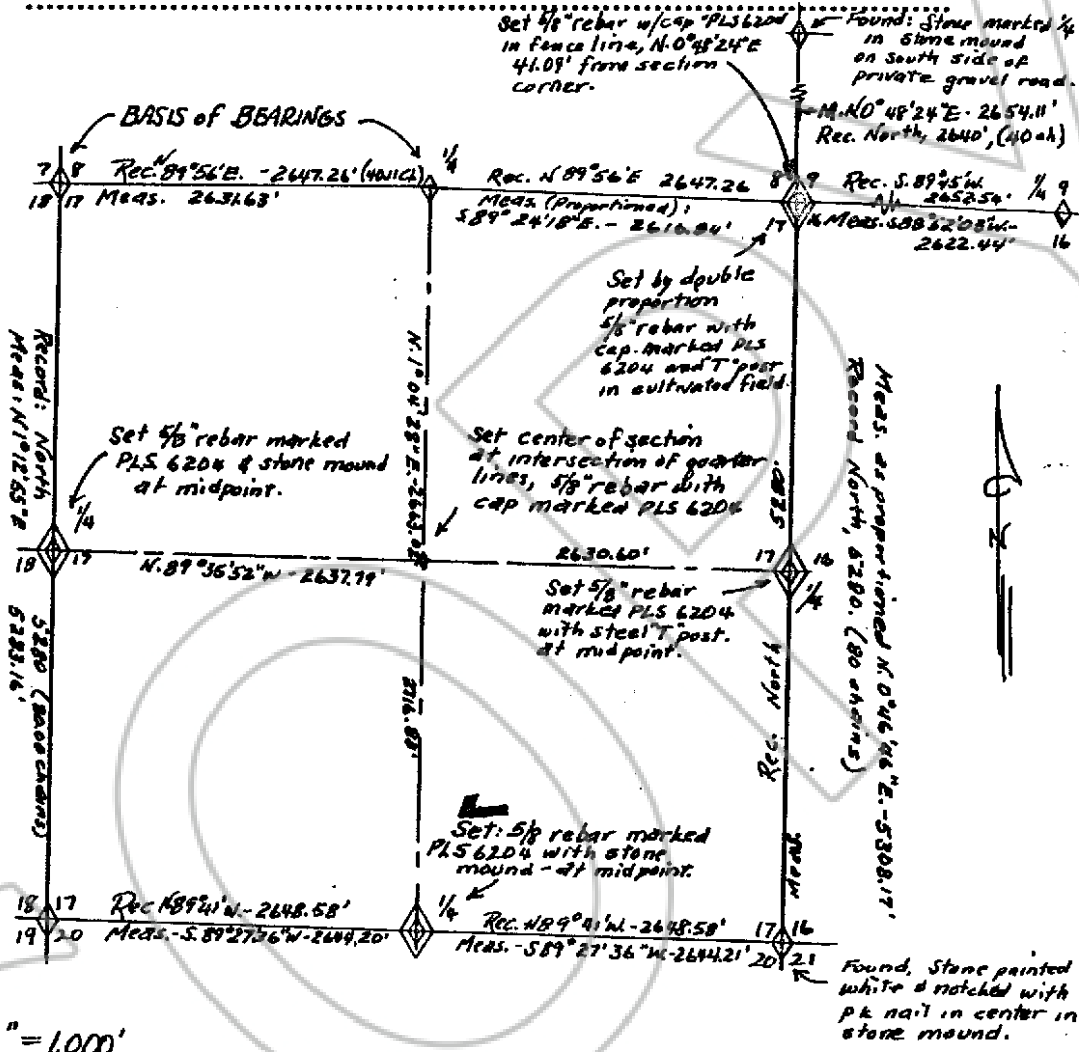 Set 5/8" rebar w/cap "PLS 6204
in fence line, N.0°48'24"E
41.09' from section
corner.
Found: Stone marked 1/4
in stone mound
on south side of
private gravel road.
M. N0°48'24"E - 2654.11'
Rec. North, 2640', (40 ch)
BASIS of BEARINGS
7 8
18 17
Rec. N 89°56'E. - 2647.26' (40.11 Ch)
Meas. 2631.63'
1/4
Rec. N 89°56'E 2647.26
Meas. (Proportioned):
S.89°24'18"E. - 2616.84'
8 9
17 16
Rec. S.89°45'W.
2652.54'
Meas. S88°52'03"W.-
2622.44'
1/4 9
16
Set by double
proportion
5/8" rebar with
cap marked PLS
6204 and "T" post
in cultivated field.
Record: North
Meas: N1°12'55"E
5280 (80.00 chains)
5283.16'
N.1°04'28"E.-2663.02
2716.88'
Set 5/8" rebar marked
PLS 6204 & stone mound
at midpoint.
1/4
18 17
Set center of section
at intersection of quarter
lines, 5/8" rebar with
cap marked PLS 6204
N.89°35'52"W - 2637.79'
2630.60'
17 16
1/4
Set 5/8" rebar
marked PLS 6204
with steel "T" post.
at midpoint.
5280.
Rec. North
Meas.
Meas. as proportioned N.0°46'46"E.-5308.17'
Record North, 5280. (80 chains)
N
Set: 5/8 rebar marked
PLS 6204 with stone
mound - at midpoint.
1/4
18 17
19 20
Rec N89°41'W.-2648.58'
Meas.-S.89°27'36"W-2644.20'
Rec. N89°41'W.-2648.58'
Meas.-S89°27'36"W.-2644.21'
17 16
20 21
Found, Stone painted
white & notched with
pk nail in center in
stone mound.
" = 1,000'